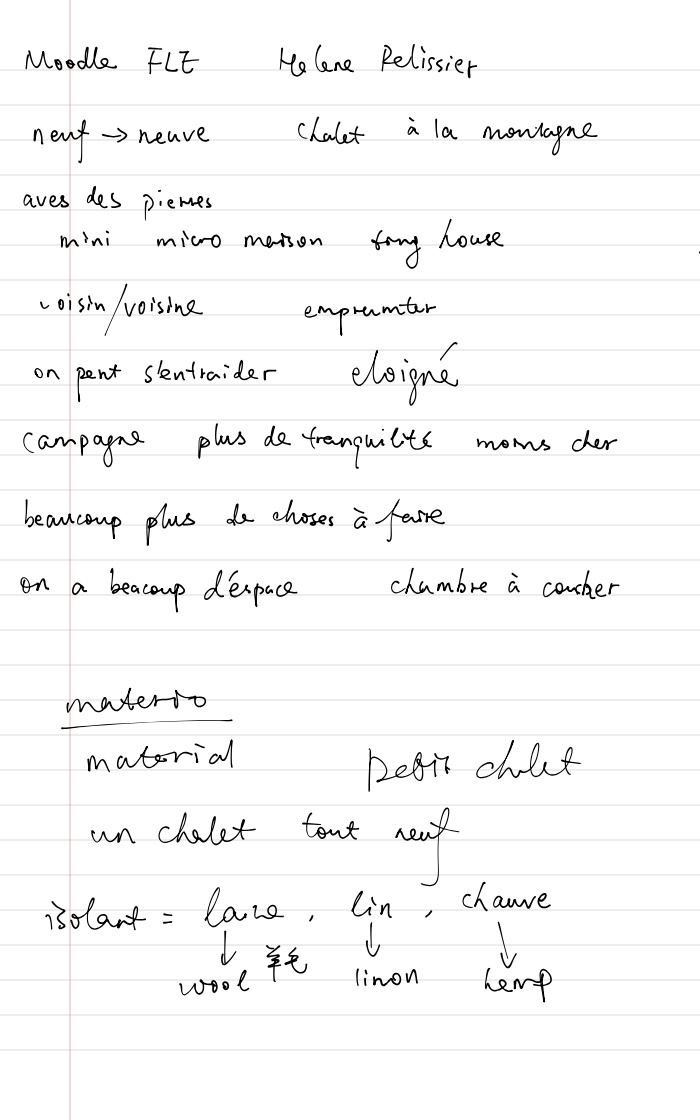 Moodle FLE Helene Pelissier
neuf → neuve chalet à la montagne
aves des pierres
mini micro maison tiny house
voisin/voisine emprumter
on peut s'entraider eloigné
campagne plus de tranquilité moins cher
beaucoup plus de choses à faire
on a beacoup d'éspace chambre à coucher
material petit chalet
un chalet tout neuf
isolant = laine, lin, chauve
↓ ↓ ↓
wool 羊毛 linon hemp